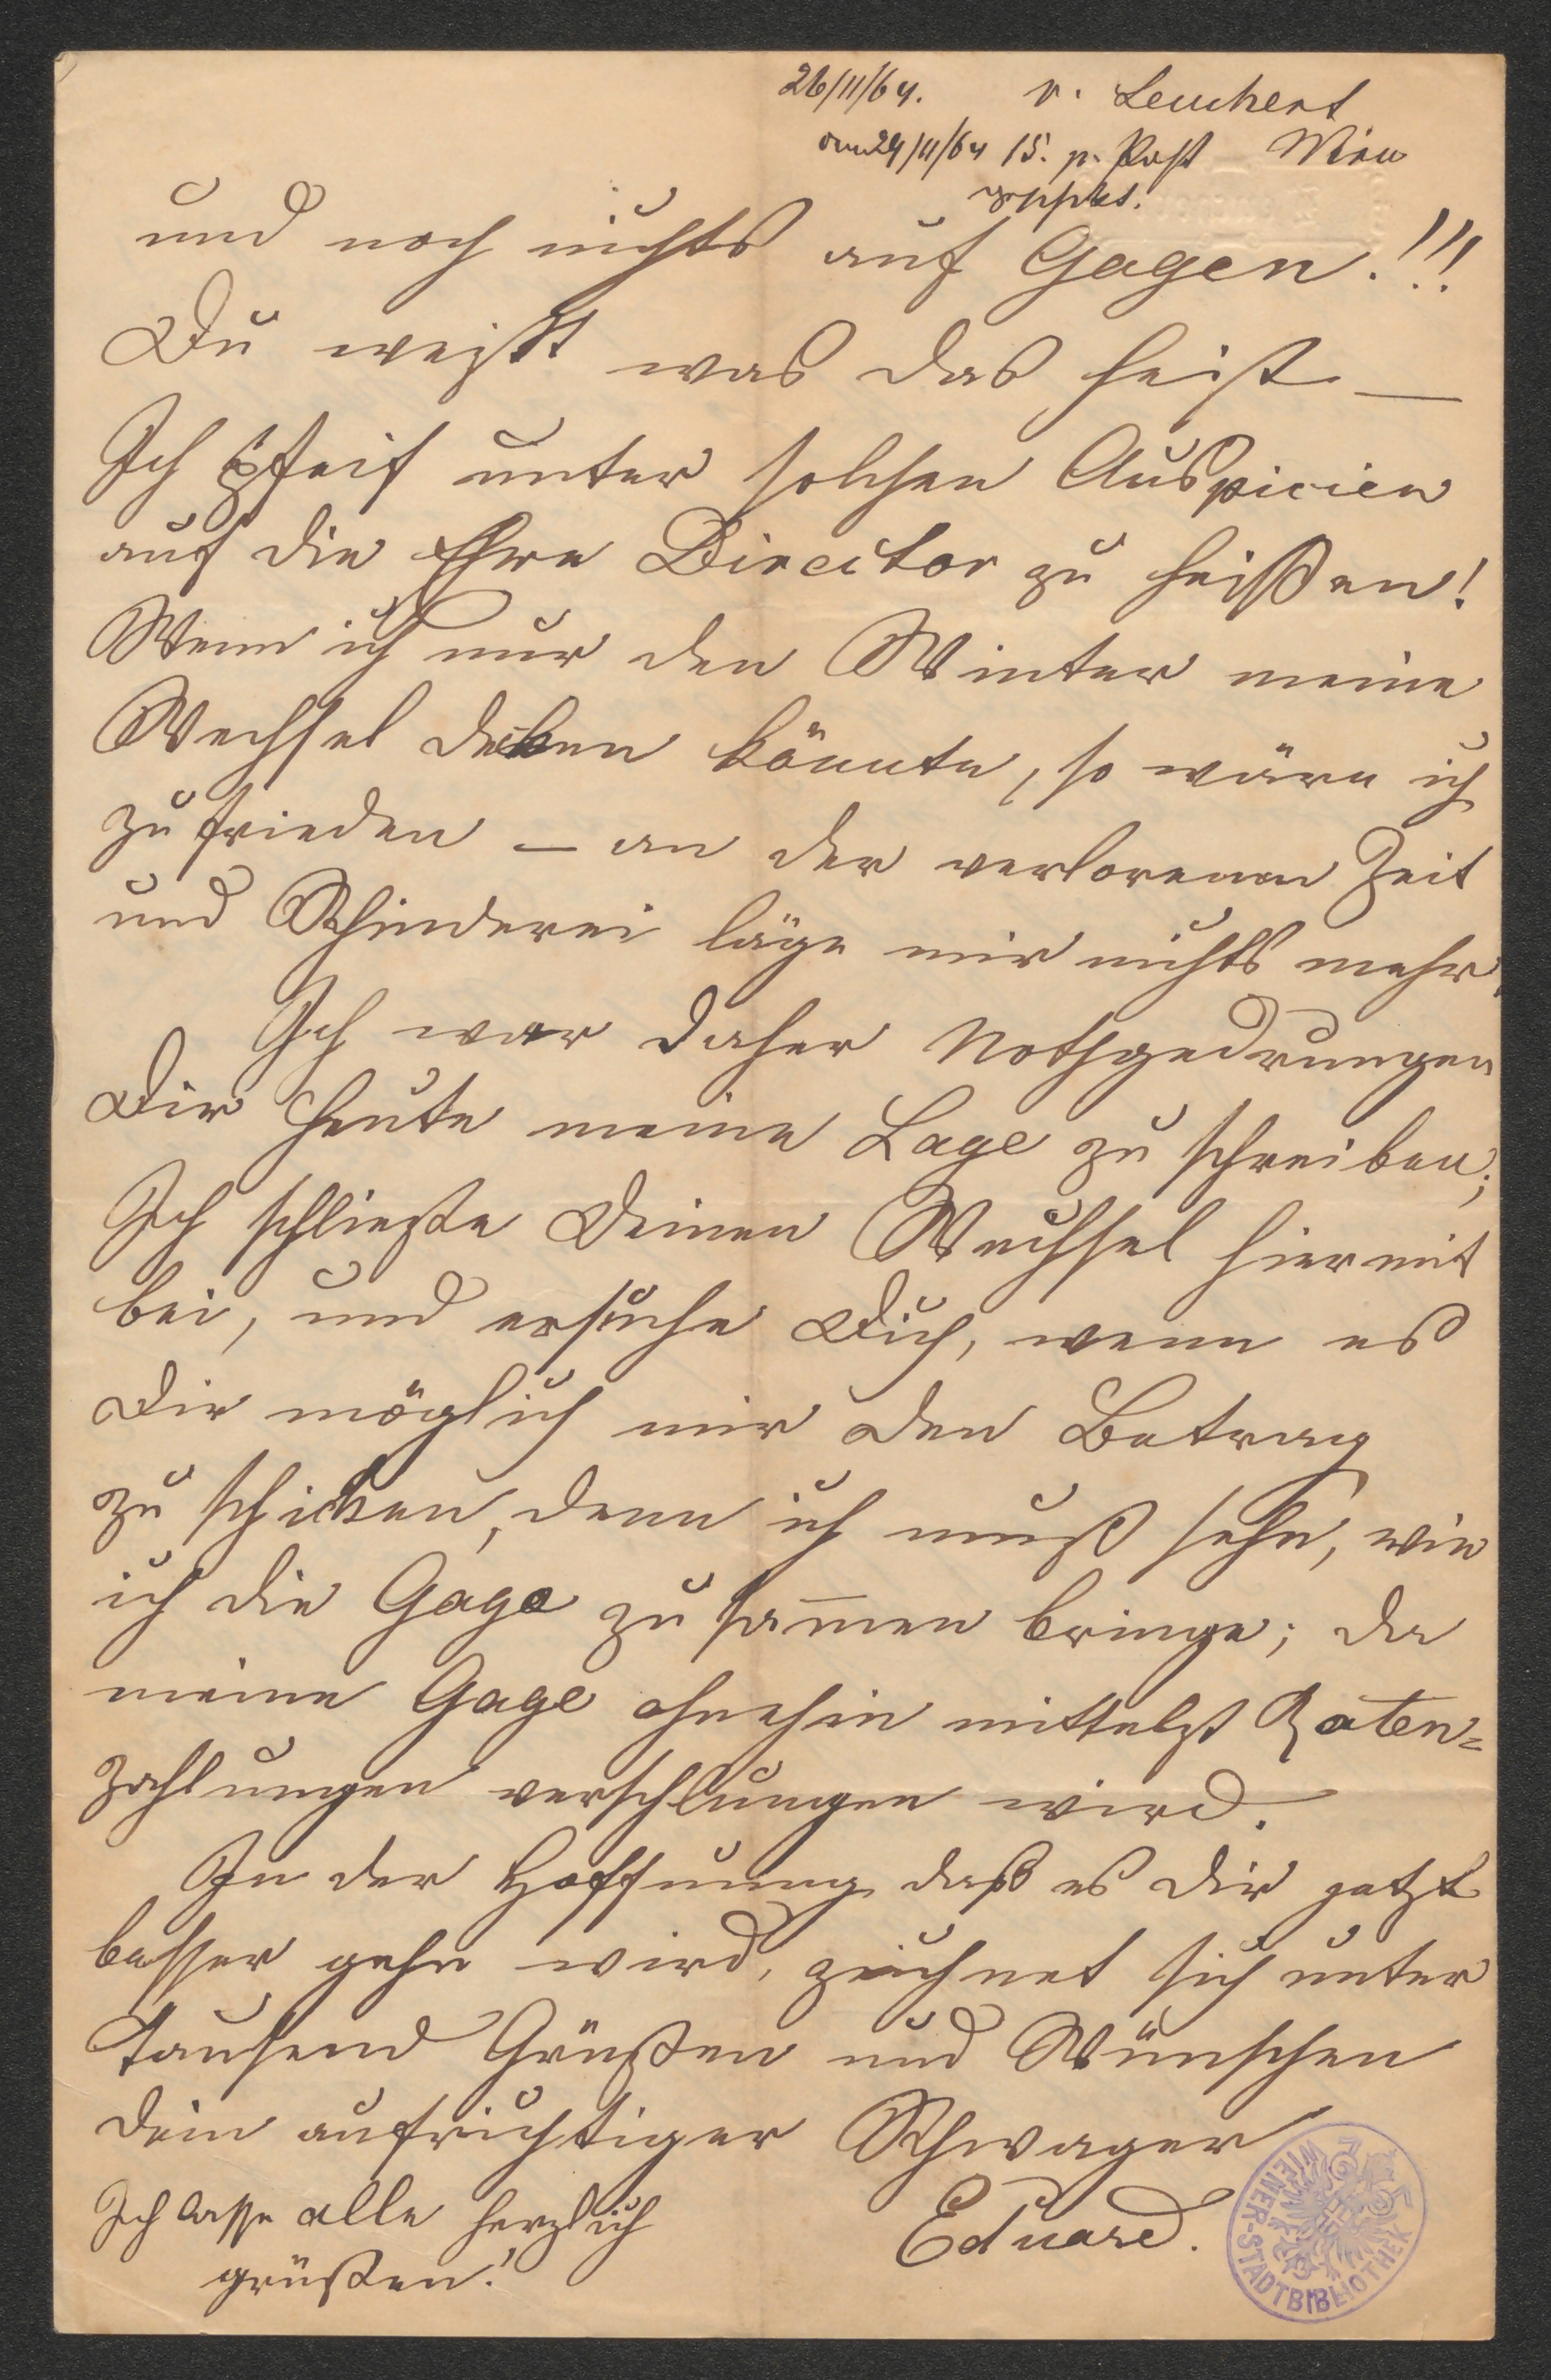 26/11/64. v. Leuchert
29/11/64 15. p. Post Wien
und noch nichts auf Gagen.!!!
Du weißt was das heist —
Ich pfeif unter solchen Auspicien
auf die Ehre Director zu heißen!
Wenn ich nur den Winter meine
Wechsel decken könnte, so wäre ich
zufrieden — an der verlorenen Zeit
und Schinderei läge mir nichts mehr.
Ich war daher nothgedrungen
Dir heute meine Lage zu schreiben;
Ich schließe Deinen Wechsel hiermit
bei, und ersuche Dich, wenn es
Dir möglich mir den Betrag
zu schicken, denn ich muß sehn, wie
ich die Gage zusam̄en bringe; da
meine Gage ohnehin mittelst Raten=
zahlungen verschlungen wird.
In der Hoffnung daß es Dir jetzt
besser gehn wird, zeichnet sich unter
tausend Grüßen und Wünschen
Dein aufrichtiger Schwager
Eduard.
Ich lasse alle herzlich
grüßen!
WIENER-STADTBIBLIOTHEK